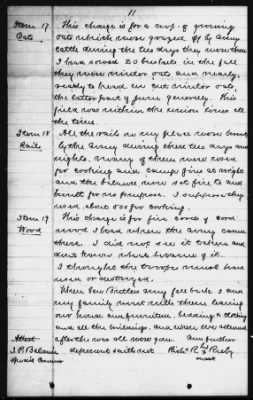 11
Item 17 This charge is for a crop of growing
Oats oats which were grazed off by Army
cattle during the two days they were there
I had sowed 20 bushels in the fall
they were winter oats and nearly
ready to head we cut winter oats,
the latter part of June generally. This
field was within the union lines all
the time.
Item 18 All the rails on my place were burnt
Rails by the Army during these two days and
nights, many of them were used
for cooking and camp fires at night
and the balance were set fire to and
burnt for no purpose. I suppose they
used about 000 for cooking.
Item 19 This charge is for five cords of cord
Wood wood I had when the army came
there. I did not see it taken and
dont know what became of it.
I thought the troops must have
used or destroyed.
When Gen Butlers army fell back I and
my family went with them leaving
our house and furniture, bedding & clothing
and all the buildings, and when we returned
Attest after this was all gone. And further
deponent saith not Richd R. his X Rixby
Special Comr mark